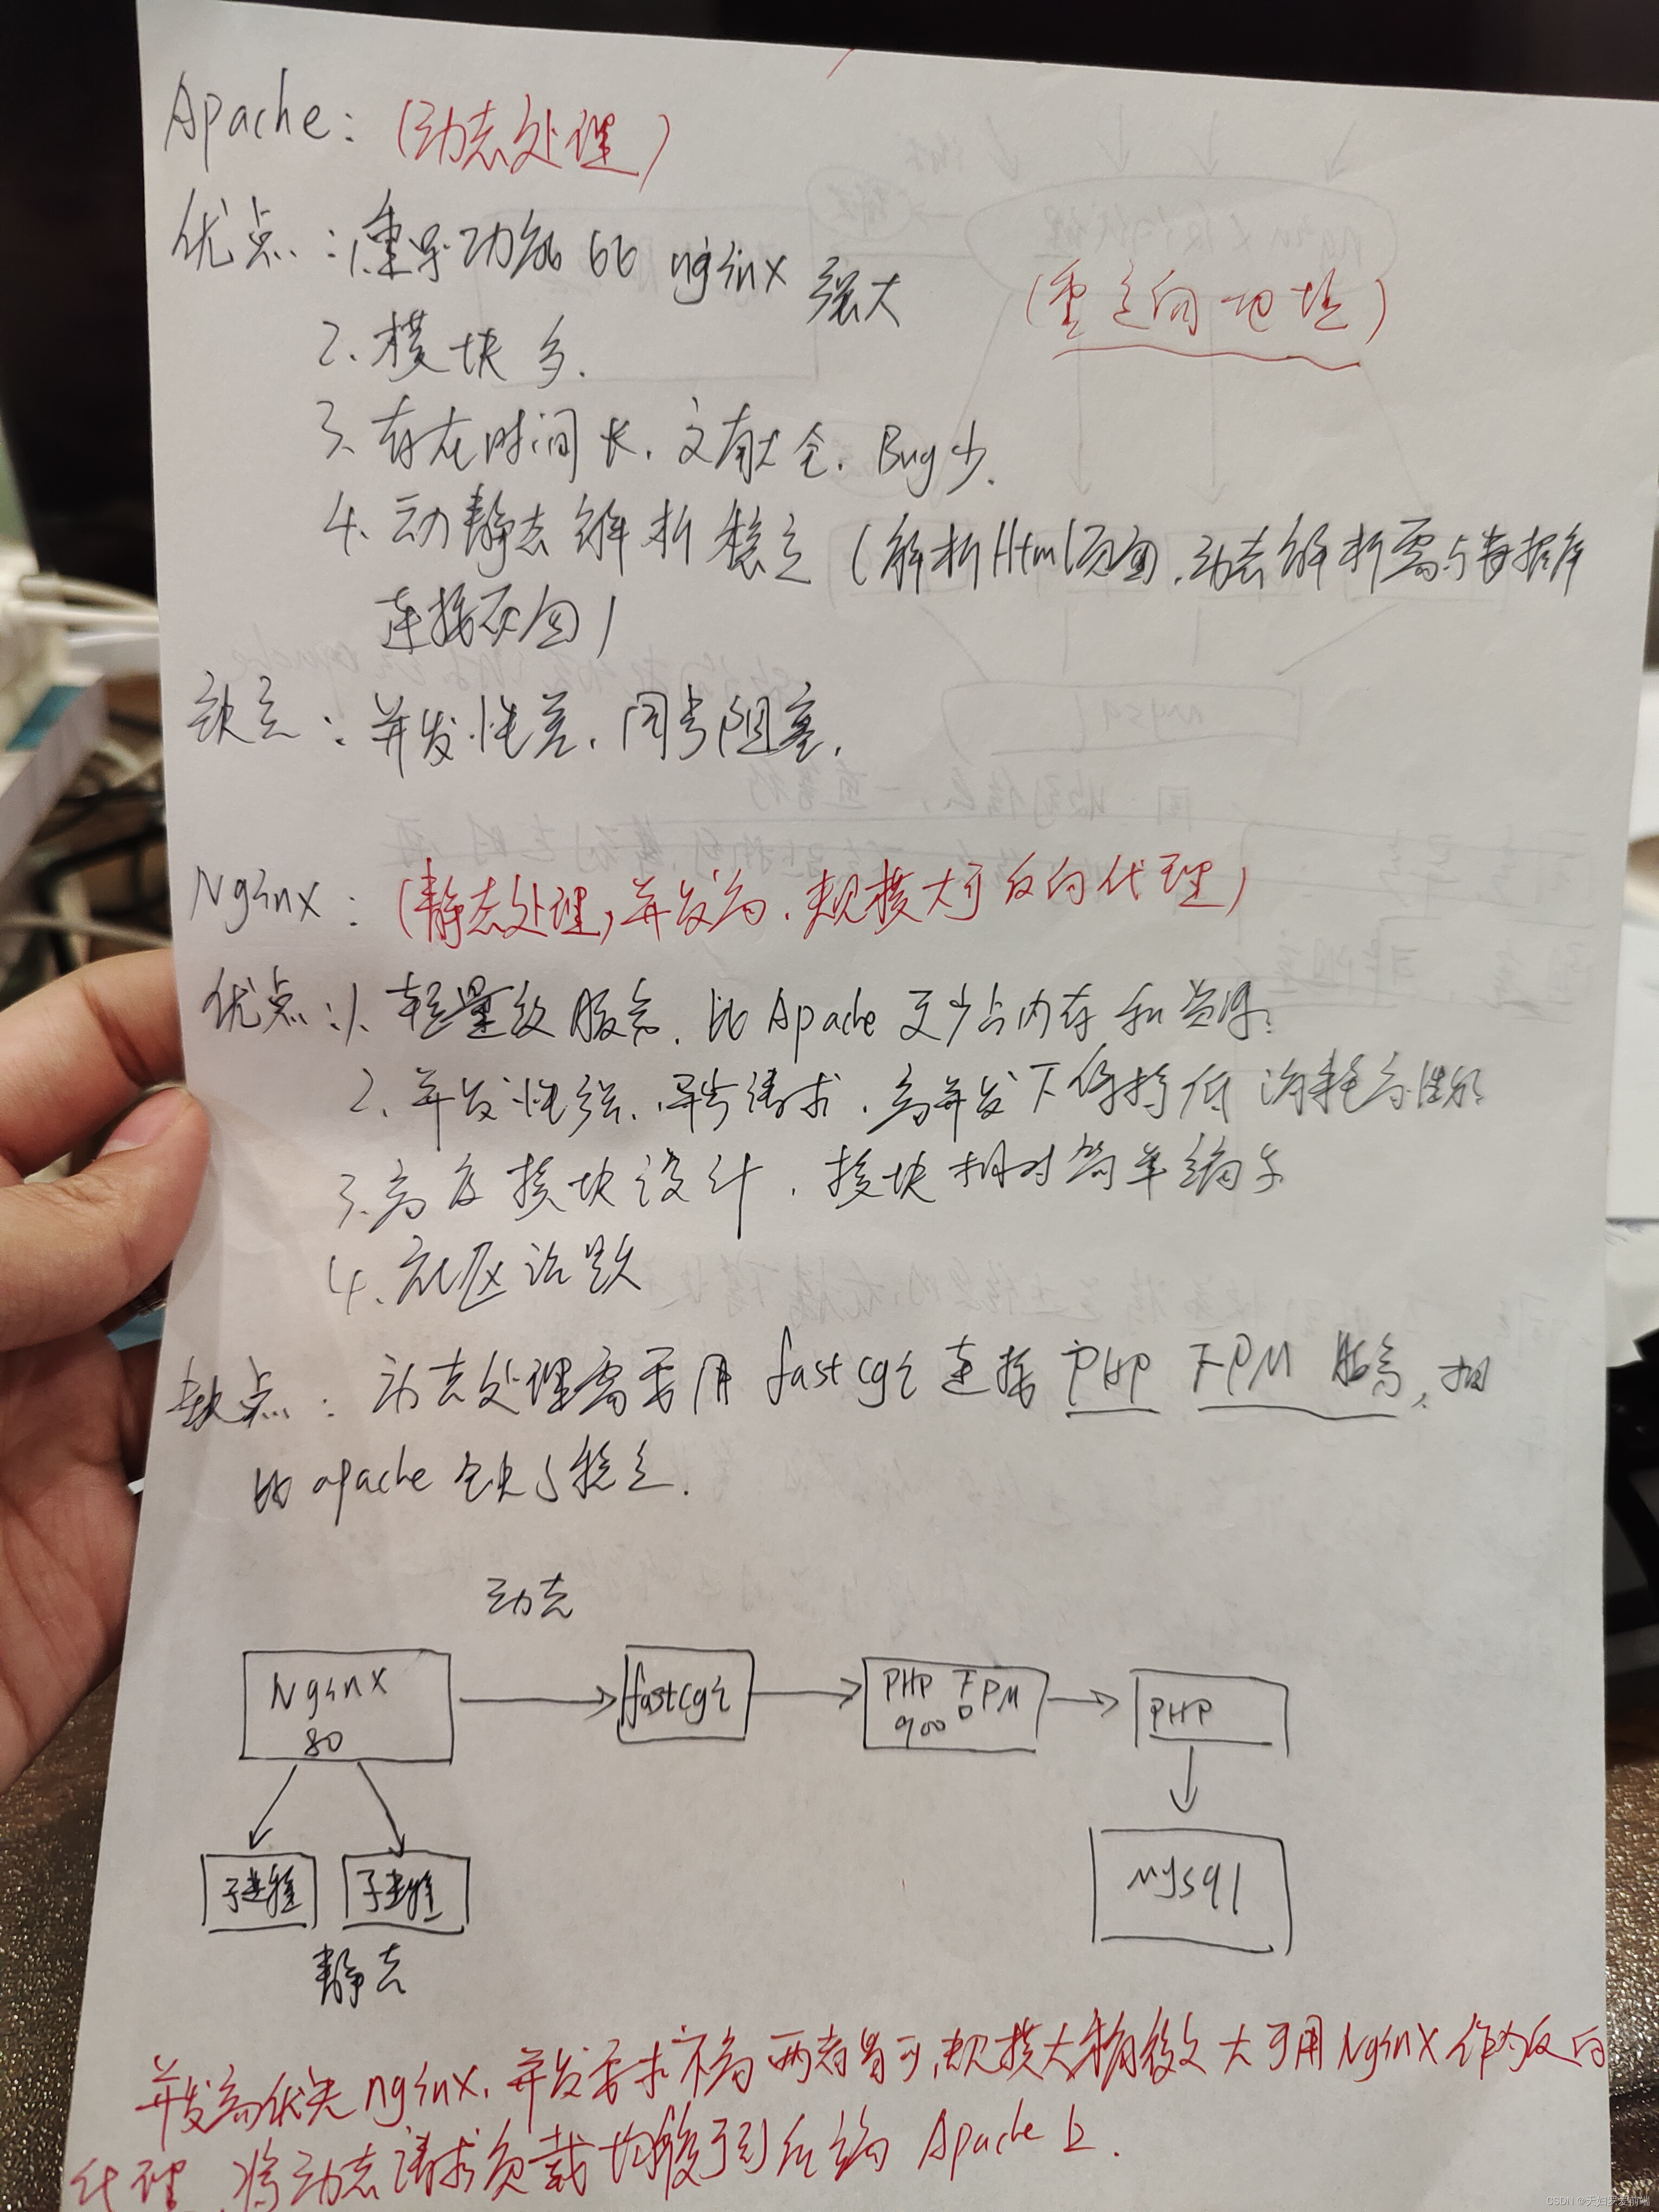 Apache: (动态处理)
优点: 1.重写功能比 nginx 强大 (重定向地址)
2. 模块多.
3. 存在时间长. 文献全. Bug少.
4. 动静态解析稳定 (解析Html页面, 动态解析需与数据库
连接页面)
缺点: 并发性差. 同步阻塞.
Nginx: (静态处理, 并发高. 规模大可反向代理)
优点: 1. 轻量级服务. 比Apache更少占内存和资源.
2. 并发性强. 异步请求. 高并发下保持低消耗高性能
3. 高度模块设计. 模块相对简单编写
4. 社区活跃
缺点: 动态处理需要用 fastcgi 连接 PHP FPM 服务, 相
比 apache 缺少稳定.
动态
Nginx
80
fastcgi
PHP FPM
9000
PHP
子进程 子进程
mysql
静态
并发高优先nginx, 并发要求不高两者皆可, 规模大 大可用Nginx作为反向
代理, 将动态请求负载均衡到后端 Apache上.
CSDN @天妇罗爱前端